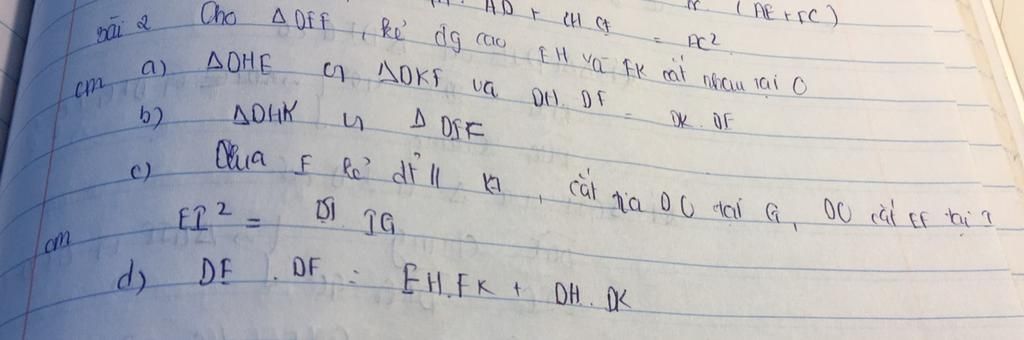 AD + CH. CF = AC² (AE + FC)
bài 2 Cho ΔDEF, kẻ đg cao EH và FK cắt nhau tại O
cm a) ΔDHE ∽ ΔDKF và DH. DF = DK. DE
b) ΔDHK ∽ ΔDEF
c) Qua F kẻ đt //, cắt tia DO tại G, DO cắt EF tại I
cm EI² = DI. IG
d) DE. DF = EH.FK + DH. DK